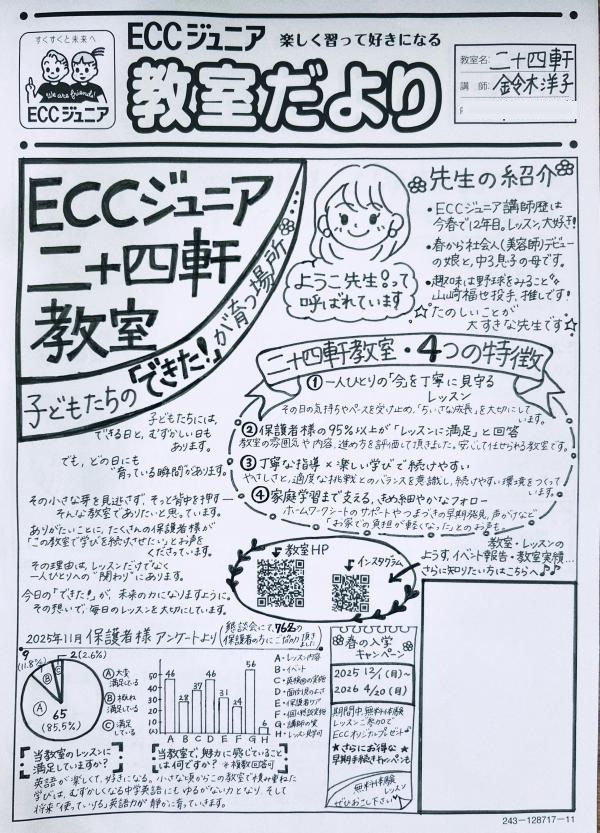 すくすくと未来へ
We are friends!
ECCジュニア
ECCジュニア 楽しく習って好きになる
教室だより
教室名: 二十四軒
講 師: 鈴木洋子
ECCジュニア
二十四軒
教室
子どもたちの「できた!」が育つ場所
ようこ先生!って
呼ばれています
先生の紹介
・ECCジュニア講師歴は
今春で12年目。レッスン、大好き!
・春から社会人(美容師)デビュー
の娘と、中3息子の母です。
・趣味は野球をみること
山崎福也投手、推しです!
☆たのしいことが
大すきな先生です☆
二十四軒教室・4つの特徴
①一人ひとりの「今」を丁寧に見守る
レッスン
その日の気持ちやペースを受け止め、「ちいさな成長」を大切にして
います。
②保護者様の95%以上が「レッスンに満足」と回答
教室の雰囲気や内容、進め方を評価して頂きました。安心して任せられる教室です。
③丁寧な指導×楽しい学びで続けやすい
やさしさと、適度な挑戦とのバランスを意識し、続けやすい環境をつくって
います。
④家庭学習まで支える、きめ細やかなフォロー
ホームワークシートのサポートやつまづきの早期発見、声がけなど
「お家での負担が軽くなった」とのお声も。
子どもたちには、
できる日と、むずかしい日も
あります。
でも、どの日にも
"育っている瞬間"があります。
その小さな芽を見逃さず、そっと背中を押す—
そんな教室でありたいと思っています。
ありがたいことに、たくさんの保護者様が
「この教室で学びを続けさせたい」とお声を
くださっています。
その理由は、レッスンだけでなく
一人ひとりへの"関わり"にあります。
今日の「できた!」が、未来の力になりますように。
その想いで、毎日のレッスンを大切にしています。
教室HP
インスタグラム
教室・レッスンの
ようす、イベント報告・教室実績…
さらに知りたい方はこちらへ♪♪
2025年11月 保護者様 アンケートより
懇談会にて、76名の
保護者の方にご協力頂きました
9
(11.8%)
2(2.6%)
A
B
C
65
(85.5%)
Ⓐ大変
満足している
Ⓑ概ね
満足している
Ⓒ満足
している
当教室のレッスンに
満足していますか?
50
40
30
20
10
0
(人)
46 28 37 46 31 24 56 6
A B C D E F G H
A・レッスン内容
B・イベント
C・英検®の実施
D・面倒見のよさ
E・保護者ケア
F・個人懇談実施
G・講師の質
H・レッスン見学可
当教室で、魅力に感じていること
は何ですか? *複数回答可
英語が楽しくて、好きになる。小さな頃からこの教室で積み重ねた
学びは、むずかしくなる中学英語にもゆるがない力となり、そして
将来「使っていける」英語力が静かに育っていきます。
春の入学
キャンペーン
2025 12/1(月)〜
2026 4/20(月)
期間中、無料体験
レッスンご参加で
ECCオリジナルプレゼント♪
★さらにお得な
早期手続きキャンペーンも
無料体験
レッスン
ぜひおこし下さい♡
243−128717−11